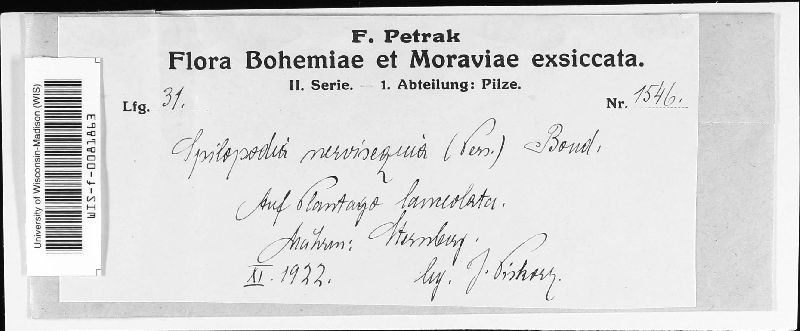 F. Petrak
Flora Bohemiae et Moraviae exsiccata.
II. Serie. — 1. Abteilung: Pilze.
Lfg. 31. Nr. 1546.
Spilopodia nervisequia (Pers.) Boud.
Auf Plantago lanceolata.
Mähren: Sternberg.
XI. 1922. leg. J. Piskorz.
University of Wisconsin-Madison (WIS)
WIS-f-0081863